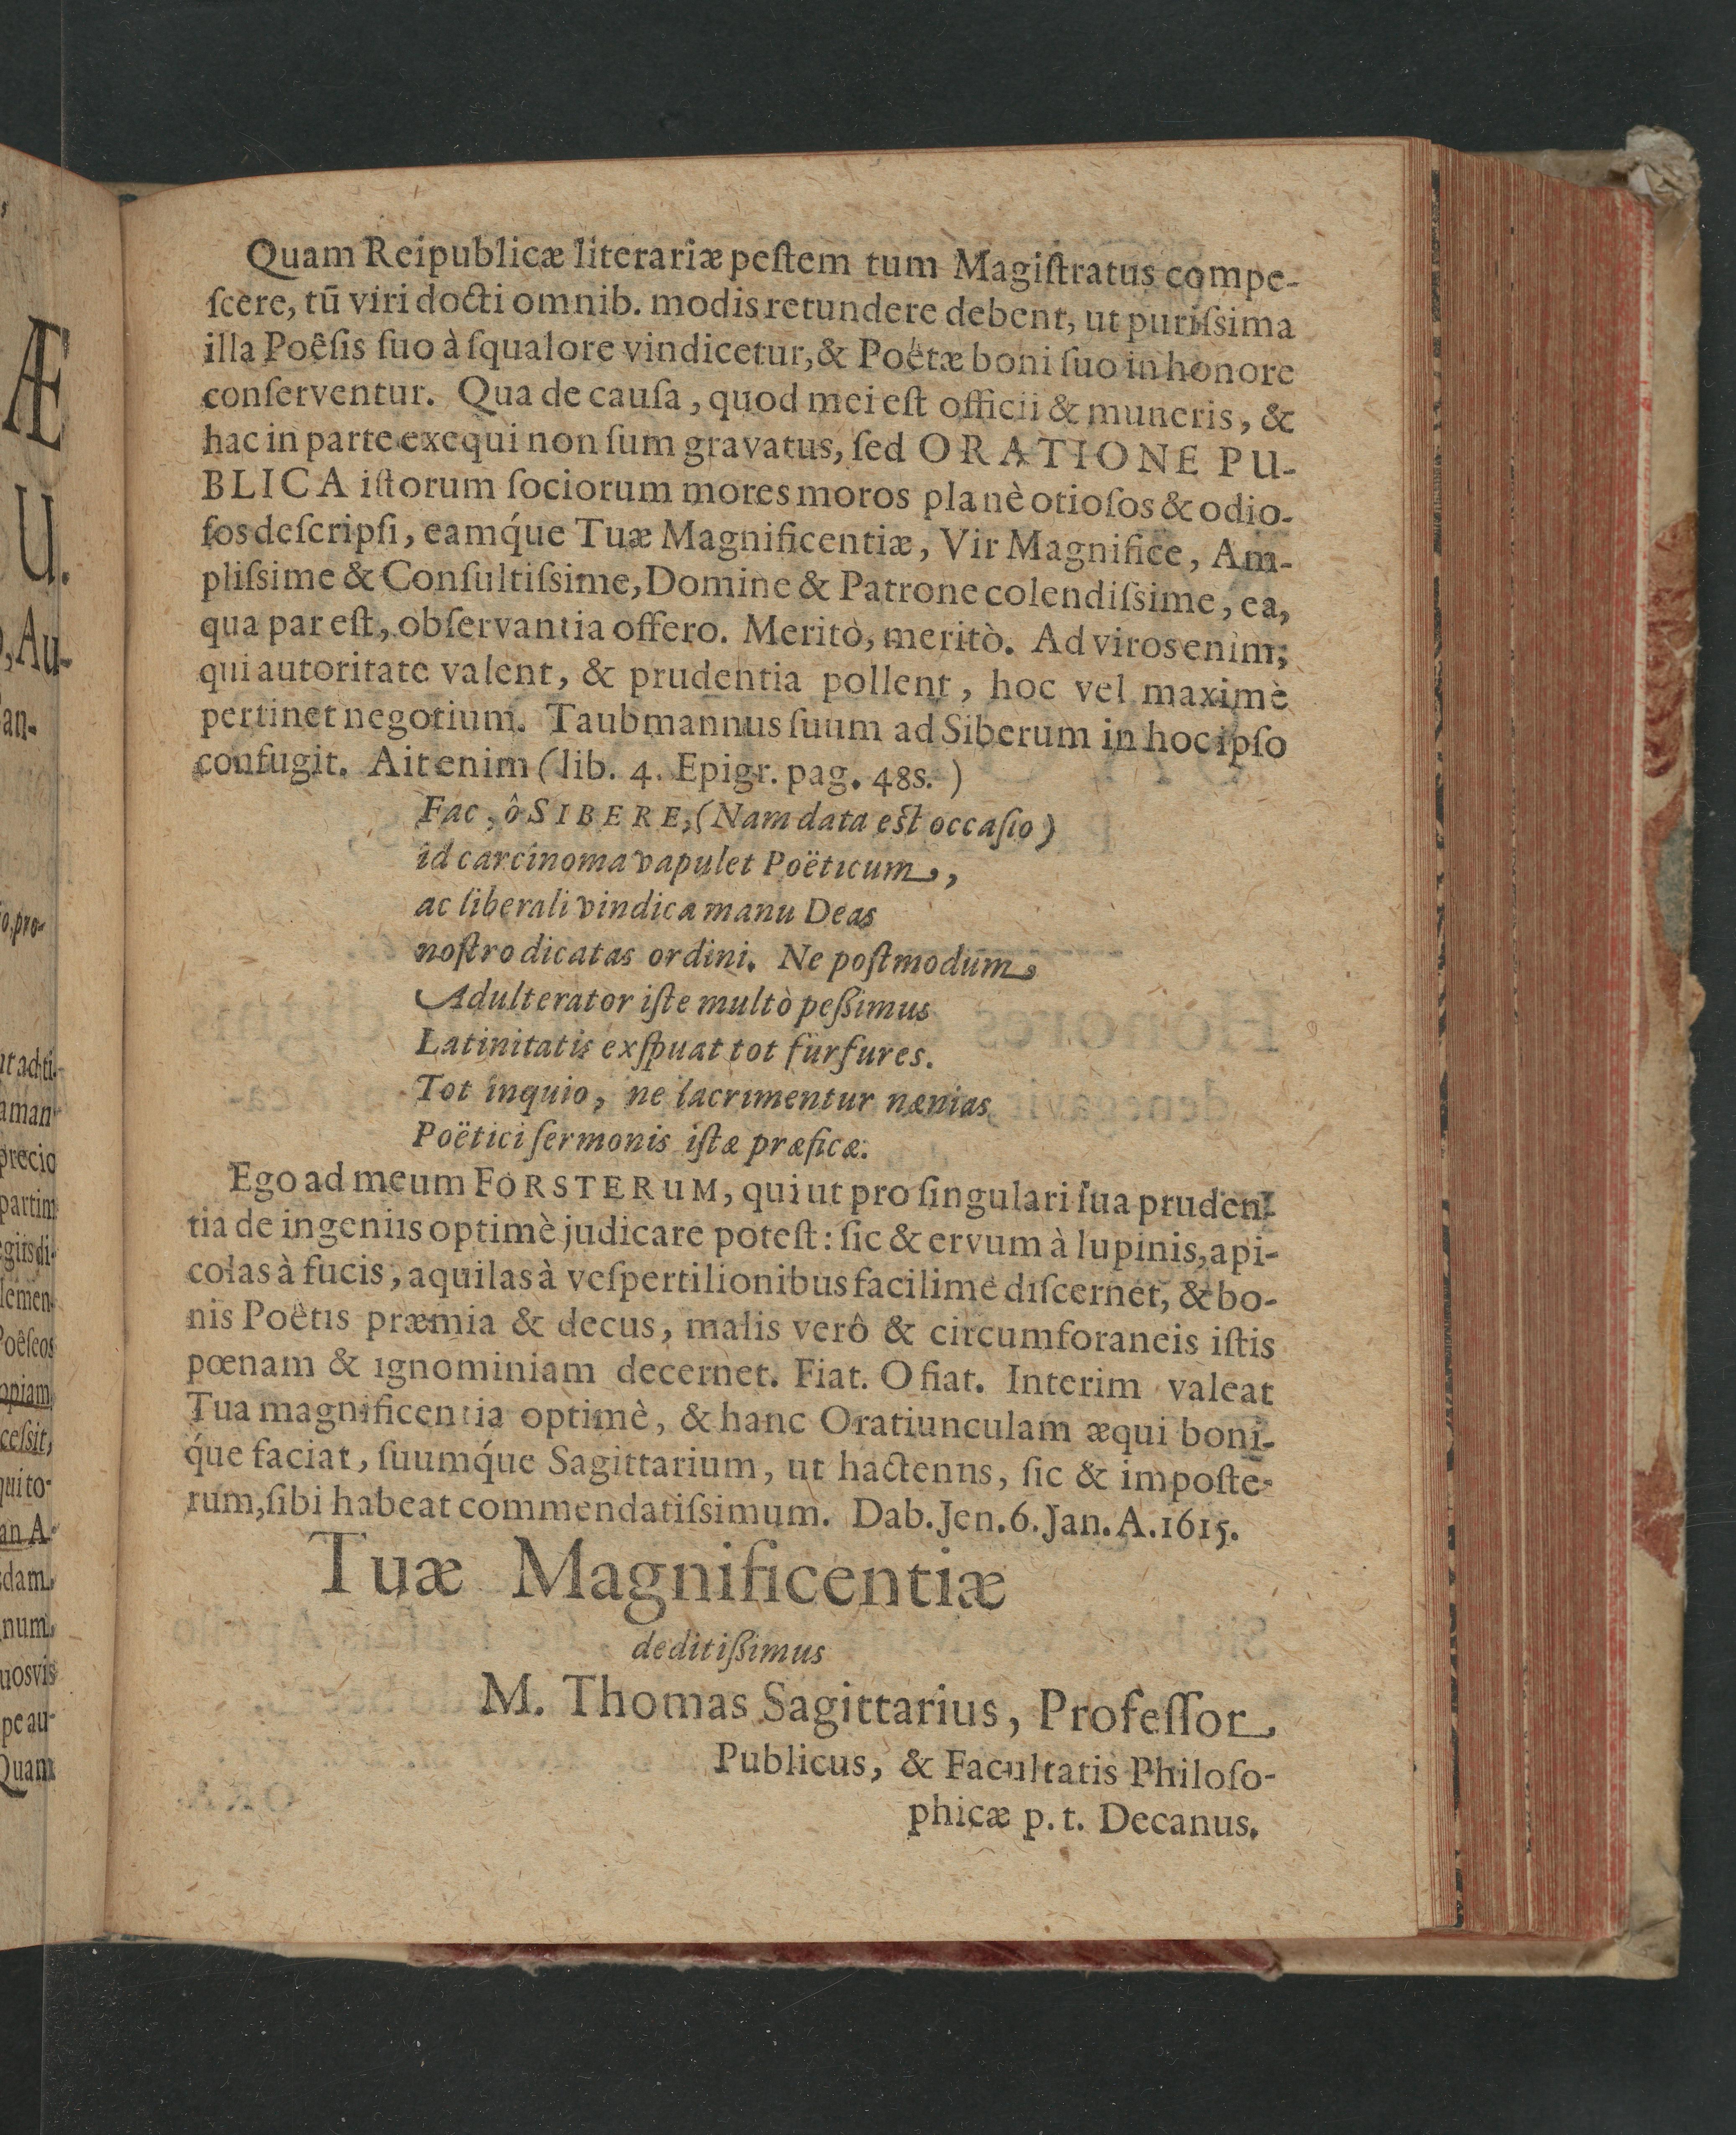 Quam Reipublicæ literariæ peſtem tum Magiſtratus compe-
ſcere, tū viri docti omnib. modis retundere debent, ut puriſsima
illa Poêſis ſuo à ſqualore vindicetur, & Poëtæ boni ſuo in honore
conſerventur. Qua de cauſa, quod mei eſt officii & muneris, &
hac in parte exequi non ſum gravatus, ſed ORATIONE PU-
BLICA iſtorum ſociorum mores moros planè otioſos & odio-
ſos deſcripſi, eamq́ue Tuæ Magnificentiæ, Vir Magnifice, Am-
pliſsime & Conſultiſsime, Domine & Patrone colendiſsime, ea,
qua par eſt, obſervantia offero. Meritò, meritò. Ad viros enim,
qui autoritate valent, & prudentia pollent, hoc vel maximè
pertinet negotium. Taubmannus ſuum ad Siberum in hoc ipſo
confugit. Ait enim (lib. 4. Epigr. pag. 48s.)
Fac, ô SIBERE, (Nam data eſt occaſio)
id carcinoma vapulet Poëticum,
ac liberali vindica manu Deas
noſtro dicatas ordini. Ne poſtmodum
Adulterator iſte multò peßimus
Latinitatis exſpuat tot furfures.
Tot inquio, ne lacrimentur nænias
Poëtici ſermonis iſtæ præficæ.
Ego ad meum FORSTERUM, qui ut pro ſingulari ſua pruden-
tia de ingeniis optimè judicare poteſt: ſic & ervum à lupinis, api-
colas à fucis, aquilas à veſpertilionibus facilimè diſcernet, & bo-
nis Poëtis præmia & decus, malis verô & circumforaneis iſtis
pœnam & ignominiam decernet. Fiat. O fiat. Interim valeat
Tua magnificentia optimè, & hanc Oratiunculam æqui boni-
q́ue faciat, ſuumq́ue Sagittarium, ut hactenns, ſic & impoſte-
rum, ſibi habeat commendatiſsimum. Dab. Jen. 6. Jan. A. 1615.
Tuæ Magnificentiæ
deditißimus
M. Thomas Sagittarius, Profeſſor
Publicus, & Facultatis Philoſo-
phicæ p. t. Decanus.